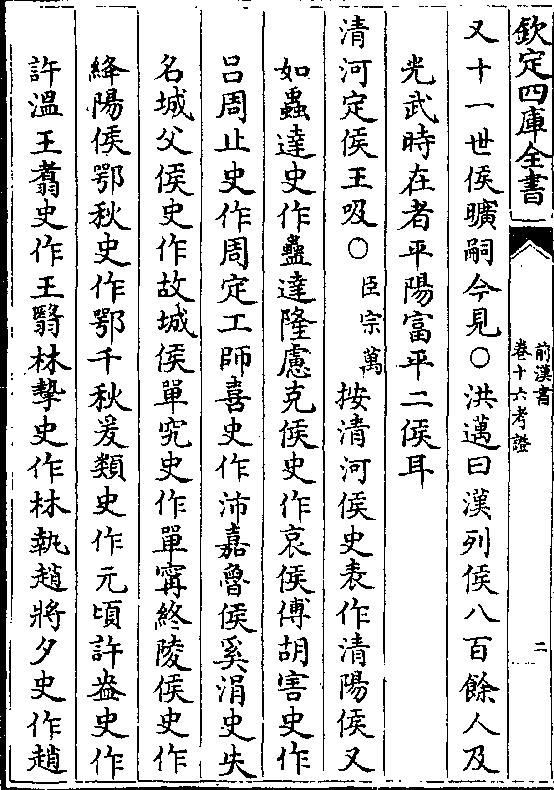 欽定四庫全書
前漢書
卷十六考證
二
又十一世侯曠嗣今見○洪邁曰漢列侯八百餘人及
光武時在者平陽富平二侯耳
清河定侯王吸○臣宗萬按清河侯史表作清陽侯又
如蟲達史作蠱達隆慮克侯史作哀侯傅胡害史作
呂周止史作周定工師喜史作沛嘉魯侯奚涓史失
名城父侯史作故城侯單究史作單寗終陵侯史作
絳陽侯鄂秋史作鄂千秋爰類史作元頃許盎史作
許溫王翥史作王翳林摯史作林執趙將夕史作趙